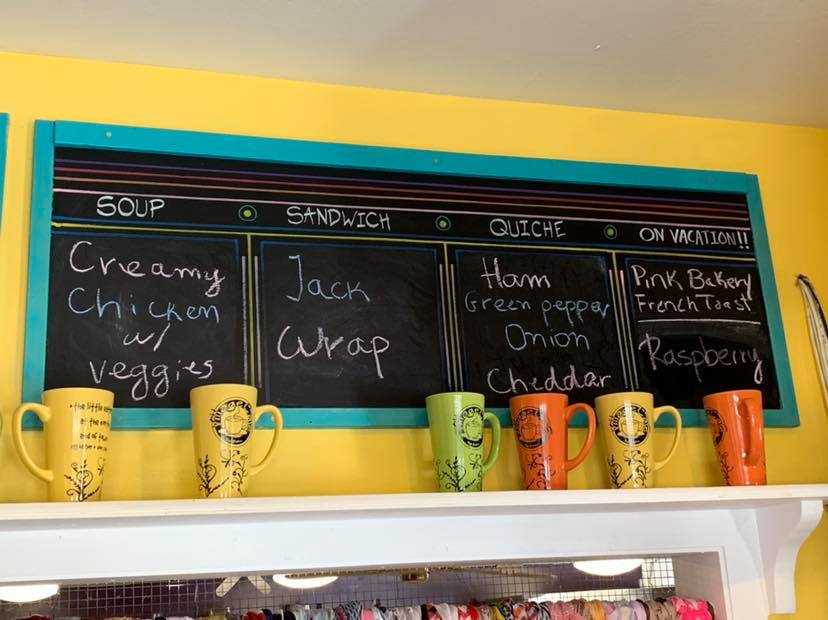 SOUP
SANDWICH
QUICHE
ON VACATION!!
Creamy
Chicken
w/
veggies
Jack
Wrap
Ham
Green pepper
Onion
Cheddar
Pink Bakery
French Toast
Raspberry
the little
at the
end of